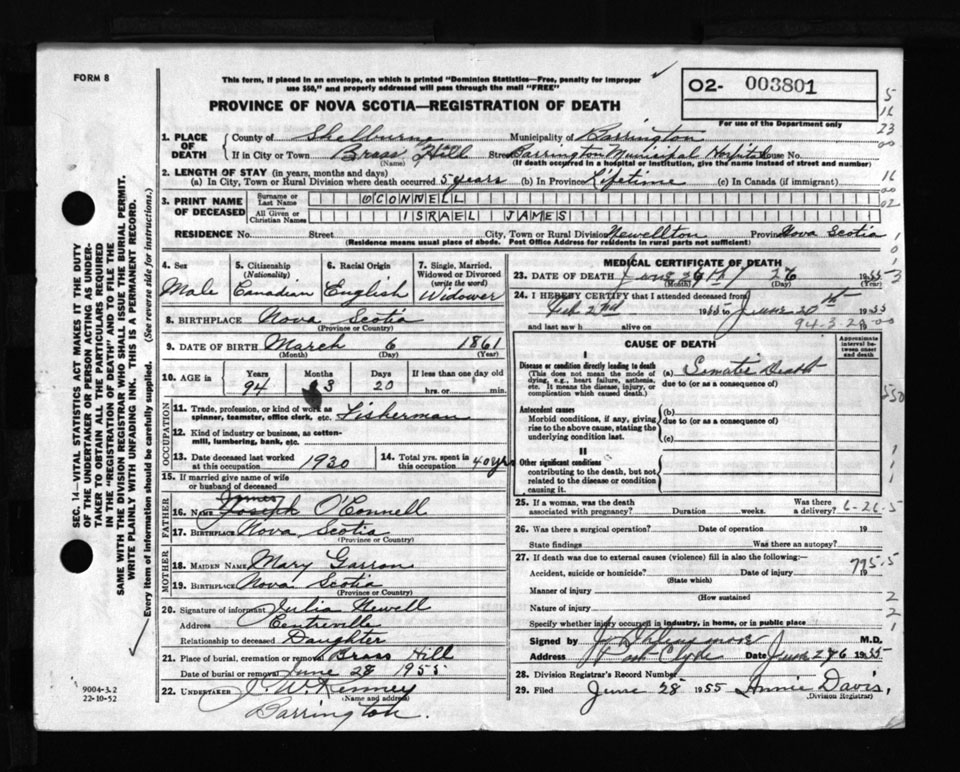 FORM 8
This form, if placed in an envelope, on which is printed "Dominion Statistics—Free, penalty for improper
use $50," and properly addressed will pass through the mail "FREE"
PROVINCE OF NOVA SCOTIA—REGISTRATION OF DEATH
O2- 003801
For use of the Department only
SEC. 14—VITAL STATISTICS ACT MAKES IT THE DUTY
OF THE UNDERTAKER OR PERSON ACTING AS UNDER-
TAKER TO OBTAIN ALL THE PARTICULARS REQUIRED
IN THE "REGISTRATION OF DEATH" AND TO FILE THE
SAME WITH THE DIVISION REGISTRAR WHO SHALL ISSUE THE BURIAL PERMIT.
WRITE PLAINLY WITH UNFADING INK. THIS IS A PERMANENT RECORD.
Every item of information should be carefully supplied. (See reverse side for instructions.)
1. PLACE OF DEATH
County of Shelburne Municipality of Barrington
If in City or Town Brass Hill Street Barrington Municipal Hospital House No.
(Name) (If death occurred in a hospital or institution, give the name instead of street and number)
2. LENGTH OF STAY (in years, months and days)
(a) In City, Town or Rural Division where death occurred 5 years (b) In Province Lifetime (c) In Canada (if immigrant)
3. PRINT NAME OF DECEASED
Surname or Last Name OCONNELL
All Given or Christian Names ISRAEL JAMES
RESIDENCE No. Street City, Town or Rural Division Newellton Province Nova Scotia
(Residence means usual place of abode. Post Office Address for residents in rural parts not sufficient)
4. Sex Male
5. Citizenship (Nationality) Canadian
6. Racial Origin English
7. Single, Married, Widowed or Divorced (write the word) Widower
8. BIRTHPLACE Nova Scotia
(Province or Country)
9. DATE OF BIRTH March 6 1861
(Month) (Day) (Year)
10. AGE in Years 94 Months 3 Days 20 If less than one day old hrs. or min.
OCCUPATION
11. Trade, profession, or kind of work as spinner, teamster, office clerk, etc. Fisherman
12. Kind of industry or business, as cotton-mill, lumbering, bank, etc.
13. Date deceased last worked at this occupation 1930
14. Total yrs. spent in this occupation 40 yrs
15. If married give name of wife or husband of deceased
FATHER
16. Name James Joseph O'Connell
17. Birthplace Nova Scotia
(Province or Country)
MOTHER
18. MAIDEN NAME Mary Garron
19. BIRTHPLACE Nova Scotia
(Province or Country)
20. Signature of informant Julia Newell
Address Centreville
Relationship to deceased Daughter
21. Place of burial, cremation or removal Brass Hill
Date of burial or removal June 28 1955
22. UNDERTAKER J. W. Kenney
(Name and address)
Barrington.
9004-3.2
22-10-52
MEDICAL CERTIFICATE OF DEATH
23. DATE OF DEATH 26 1955
(Month) (Day) (Year)
24. I HEREBY CERTIFY that I attended deceased from
Feb 2nd 1955 to June 1955
and last saw h alive on
94-3-20
CAUSE OF DEATH
Approximate interval between onset and death
I
Disease or condition directly leading to death
(This does not mean the mode of dying, e.g., heart failure, asthenia, etc. It means the disease, injury, or complication which caused death.)
(a) Death
due to (or as a consequence of)
Antecedent causes
Morbid conditions, if any, giving rise to the above cause, stating the underlying condition last.
(b)
due to (or as a consequence of)
(c)
II
Other significant conditions
contributing to the death, but not related to the disease or condition causing it.
25. If a woman, was the death associated with pregnancy? Duration weeks. Was there a delivery? 6-26-5
26. Was there a surgical operation? Date of operation 19
State findings Was there an autopsy?
27. If death was due to external causes (violence) fill in also the following:—
Accident, suicide or homicide? Date of injury 19
(State which)
795.5
Manner of injury
(How sustained)
Nature of injury
Specify whether injury occurred in industry, in home, or in public place
Signed by M.D.
Address Port Clyde Date June 1955
28. Division Registrar's Record Number
29. Filed June 28 1955 Annie Davis,
(Division Registrar)